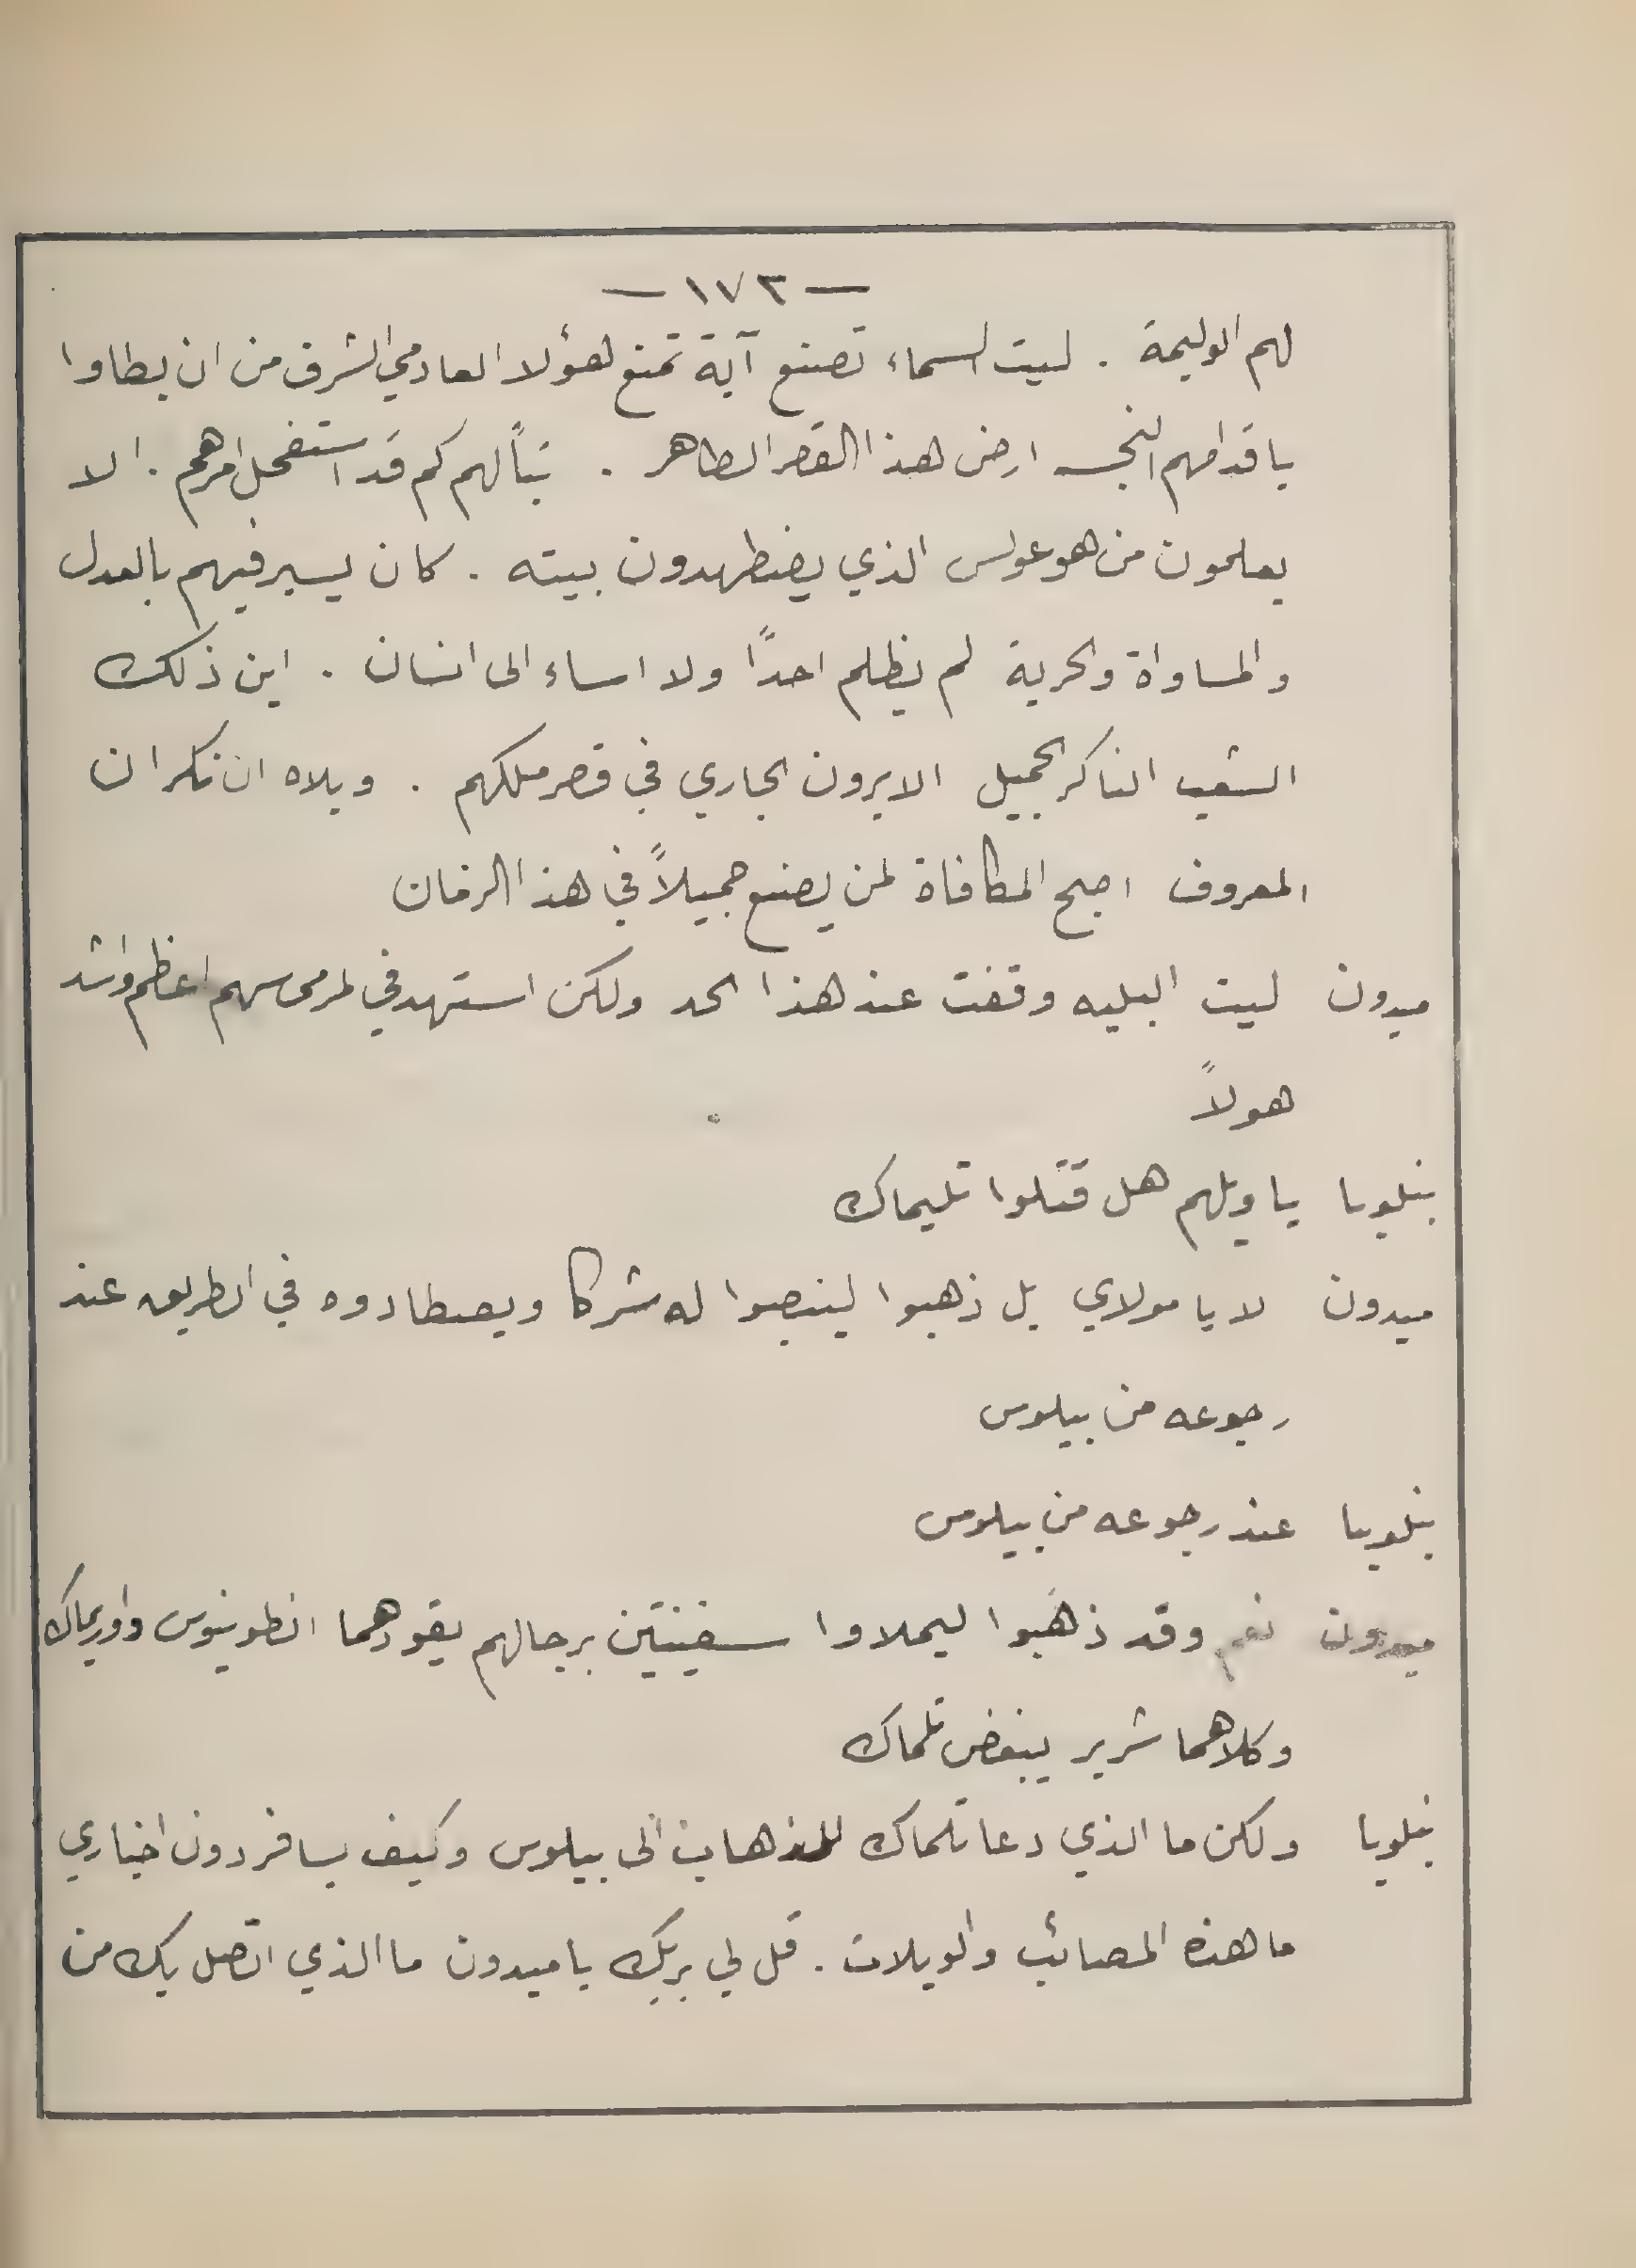 — ١٧٣ —
لهم الوليمة . ليت السماء تصنع آية تمنع هؤلا العادمي الشرف من ان يطاوا
باقدامهم النجسه ارض هذا القصر الطاهر . تباً لهم كم قد استفحل امرهم . الا
يعلمون من هو عولس الذي يضطهدون بيته . كان يسير فيهم بالعدل
والمساواة والحرية لم يظلم احدًا ولا اساء الى انسان . اين ذلك
الشعب الناكر الجميل الا يرون الجاري في قصر ملكهم . ويلاه ان نكران
المعروف اصبح المكافاة لمن يصنع جميلاً في هذا الزمان
ميدون ليت البليه وقفت عند هذا الحد ولكن استهدفي لمرمى سهم اعظم واشد
هولاً
بنلوبا يا ويلهم هل قتلوا تليماك
ميدون لا يا مولاي بل ذهبوا لينصبوا له شركا ويصطادوه في الطريق عند
رجوعه من بيلوس
بنلوبا عند رجوعه من بيلوس
ميدون نعم وقد ذهبوا ليملاوا سفينتين برجالهم يقودهما انطونيوس واوريماك
وكلاهما شرير يبغض تلماك
بنلوبا ولكن ما الذي دعا تلماك للذهاب الى بيلوس وكيف يسافر دون اخباري
ما هذه المصائب والويلات . قل لي بربك يا ميدون ما الذي اتصل بك من